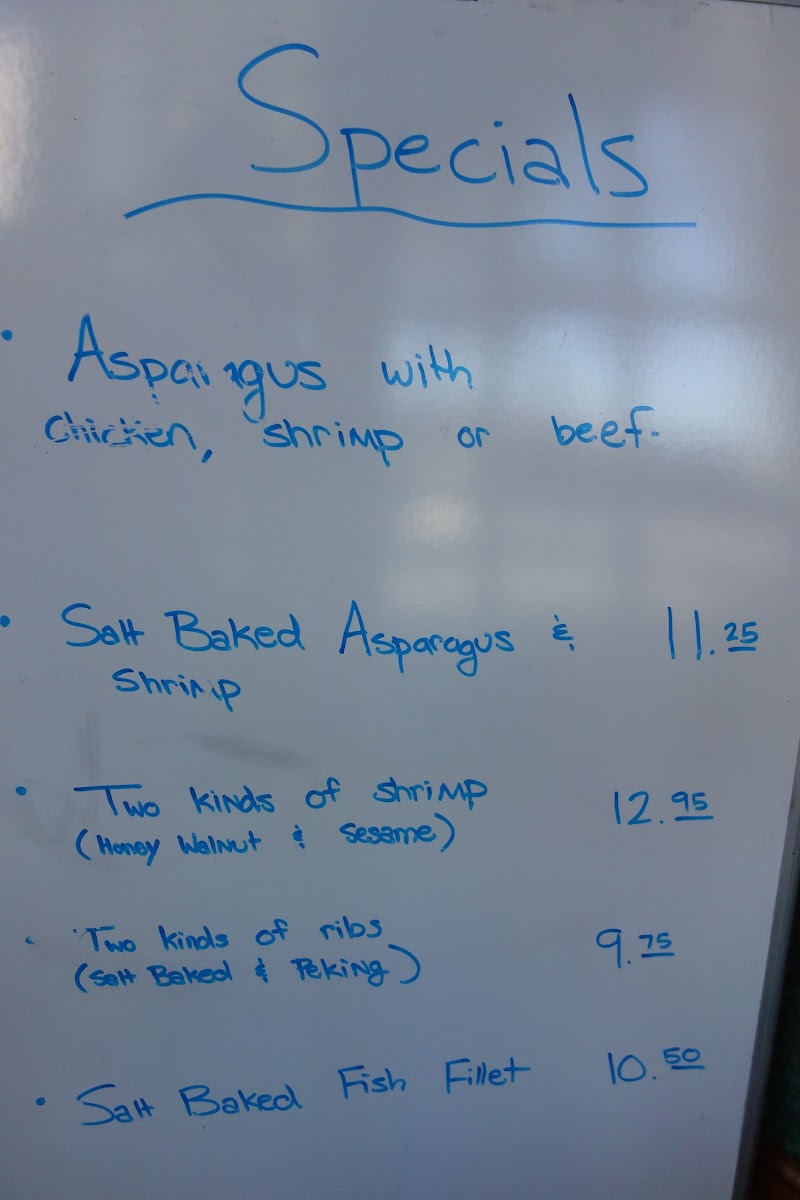 Specials
• Asparagus with
chicken, shrimp or beef.
• Salt Baked Asparagus & 11.25
shrimp
• Two kinds of shrimp 12.95
(Honey Walnut & sesame)
• Two kinds of ribs 9.75
(Salt Baked & Peking)
• Salt Baked Fish Fillet 10.50